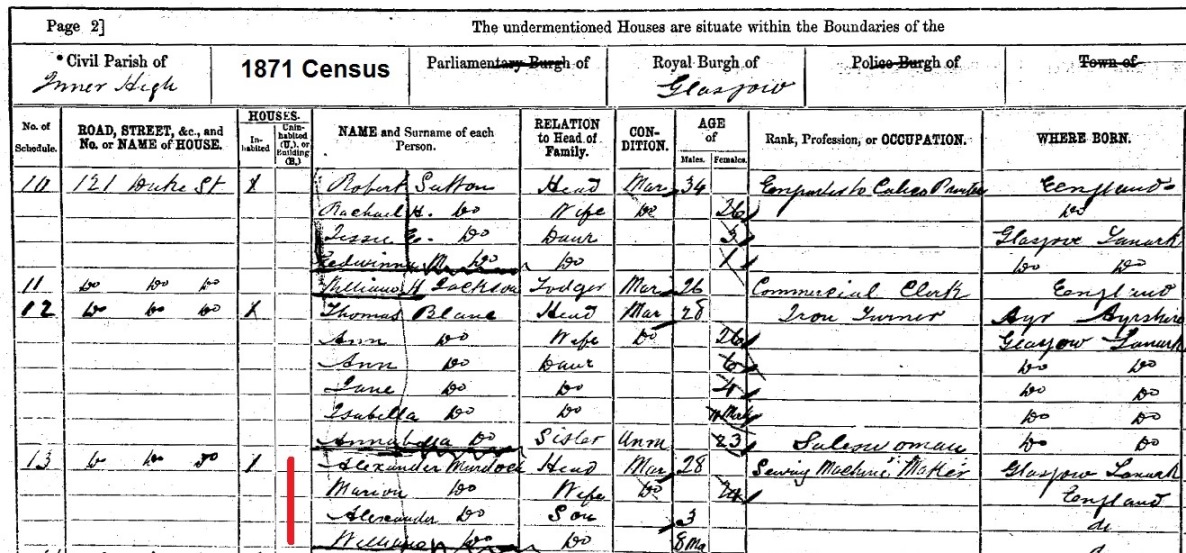 Page 2] The undermentioned Houses are situate within the Boundaries of the
*Civil Parish of 1871 Census Parliamentary Burgh of Royal Burgh of Police Burgh of Town of
Inner High Glasgow
No. of Schedule. ROAD, STREET, &c., and No. or NAME of HOUSE. HOUSES. Inhabited Uninhabited (U.), or Building (B.) NAME and Surname of each Person. RELATION to Head of Family. CONDITION. AGE of Males. Females. Rank, Profession, or OCCUPATION. WHERE BORN.
10 121 Duke St X Robert Sutton Head Mar 34 to Calico Printer England
Rachael H. Do Wife Do 26 Do
Jessie E. Do Daur 3 Glasgow Lanark
Do Do 1 Do Do
11 Do Do Do William H Jackson Lodger Mar 26 Commercial Clerk England
12 Do Do Do X Thomas Blane Head Mar 28 Iron Turner Ayr Ayrshire
Ann Do Wife Do 26 Glasgow Lanark
Ann Do Daur 6 Do Do
Jane Do Do 4 Do Do
Isabella Do Do Do Do
Annabella Do Sister Unm 23 Saleswoman Do Do
13 Do Do Do / Alexander Murdoch Head Mar 28 Sewing Machine Maker Glasgow Lanark
Marion Do Wife Do 24 England
Alexander Do Son 3 do
William Do Do 8 Mo